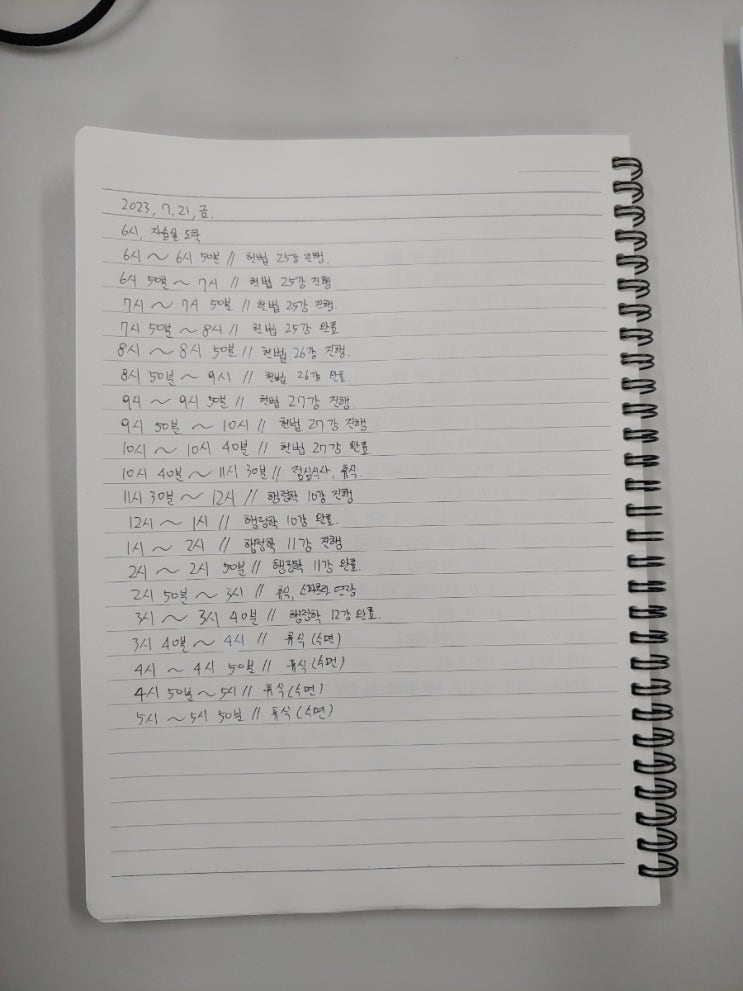 2023, 7, 21, 금.
6시, 자습실 도착
6시 ~ 6시 50분 // 헌법 25강 진행.
6시 50분 ~ 7시 // 헌법 25강 진행
7시 ~ 7시 50분 // 헌법 25강 진행.
7시 50분 ~ 8시 // 헌법 25강 완료
8시 ~ 8시 50분 // 헌법 26강 진행.
8시 50분 ~ 9시 // 헌법 26강 완료.
9시 ~ 9시 50분 // 헌법 27강 진행.
9시 50분 ~ 10시 // 헌법 27강 진행
10시 ~ 10시 40분 // 헌법 27강 완료
10시 40분 ~ 11시 30분 // 점심식사, 휴식.
11시 30분 ~ 12시 // 행정학 10강 진행
12시 ~ 1시 // 행정학 10강 완료.
1시 ~ 2시 // 행정학 11강 진행
2시 ~ 2시 50분 // 행정학 11강 완료.
2시 50분 ~ 3시 // 휴식, 연락
3시 ~ 3시 40분 // 행정학 12강 완료.
3시 40분 ~ 4시 // 휴식 (수면)
4시 ~ 4시 50분 // 휴식 (수면)
4시 50분 ~ 5시 // 휴식 (수면)
5시 ~ 5시 50분 // 휴식 (수면)